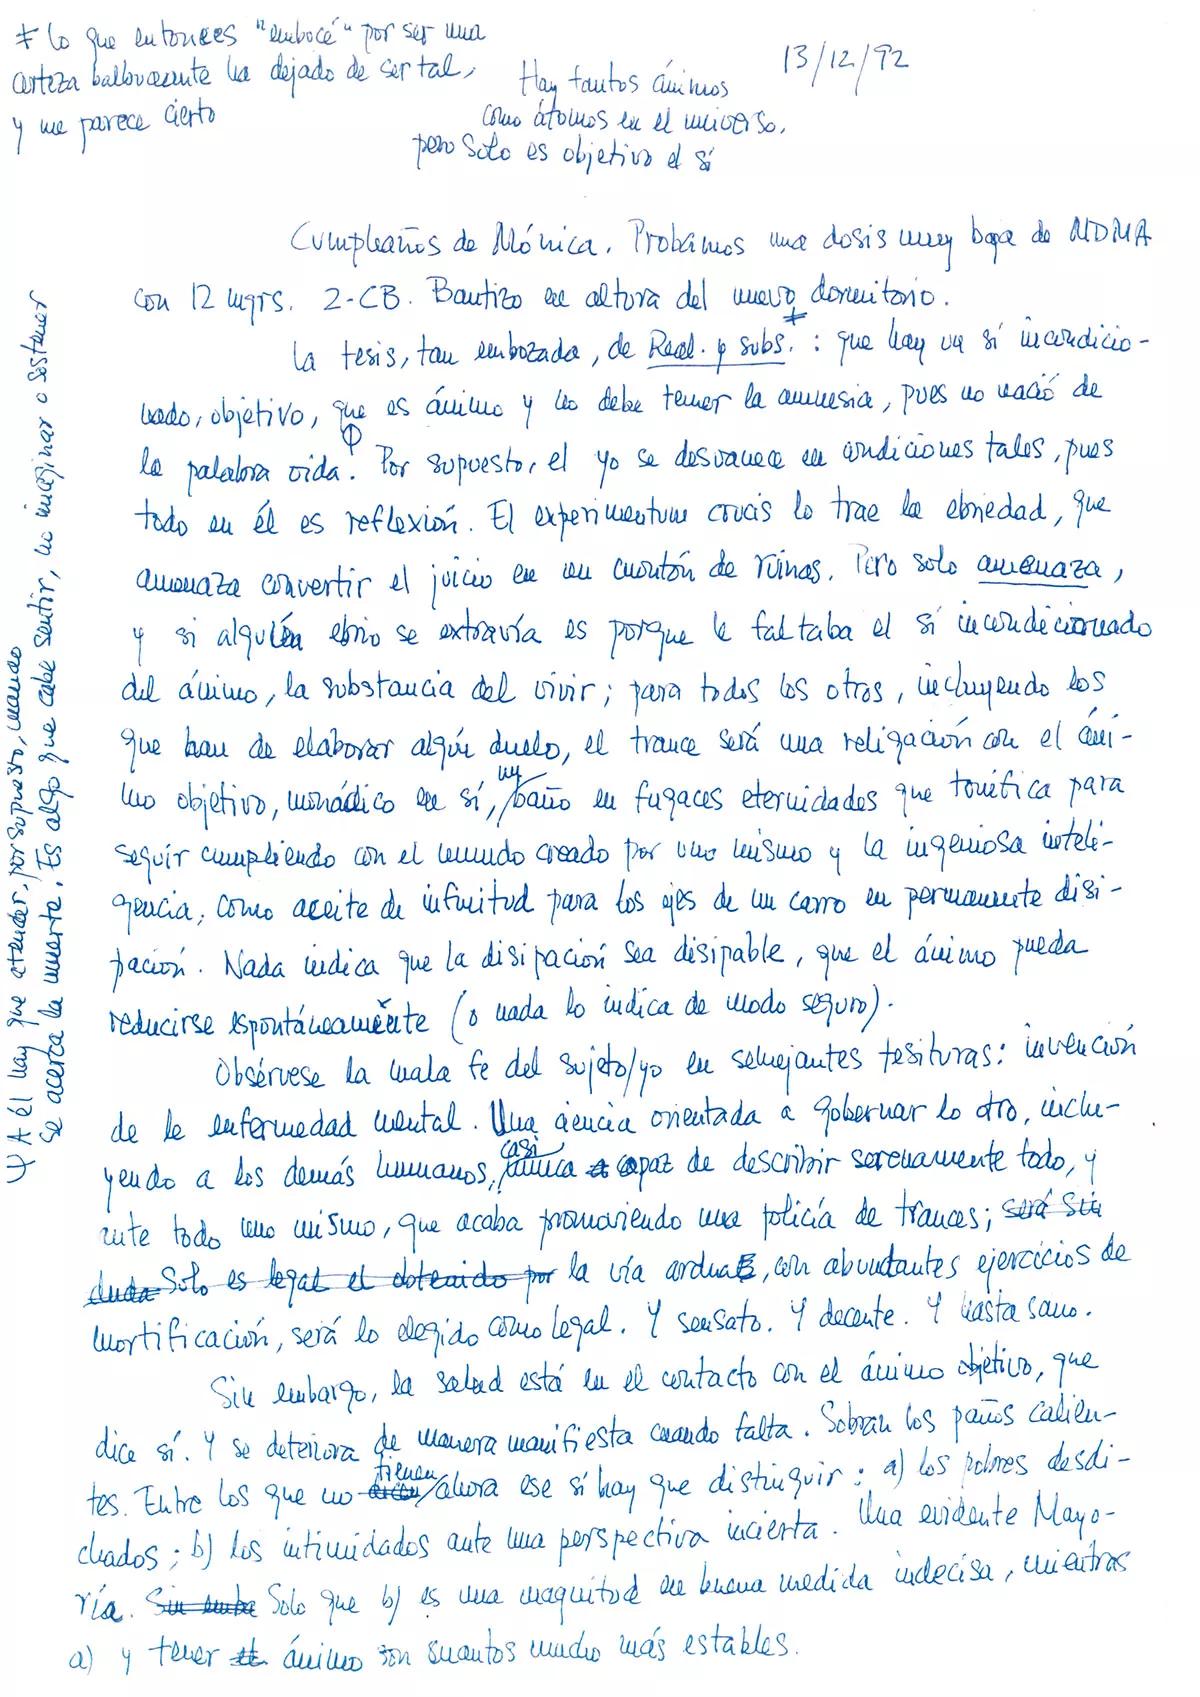 * Lo que entonces "embocé" por ser una
certeza balbuceante ha dejado de ser tal,
y me parece cierto
13/12/92
Hay tantos ánimos
como átomos en el universo,
pero solo es objetivo el sí
Cumpleaños de Mónica. Probamos una dosis muy baja de MDMA
con 12 mgrs. 2-CB. Bautizo en altura del nuevo dormitorio.
La tesis, tan embozada, de Real. y subs.*: que hay un sí incondicio-
nado, objetivo, que es ánimo y no debe temer la amnesia, pues no nació de
la palabra oida. Por supuesto, el yo se desvanece en condiciones tales, pues
todo en él es reflexión. El experimentum crucis lo trae la ebriedad, que
amenaza convertir el juicio en un montón de ruinas. Pero solo amenaza,
y si algulén ebrio se extravía es porque le faltaba el sí incondicionado
del ánimo, la substancia del vivir; para todos los otros, incluyendo los
que han de elaborar algún duelo, el trance será una religación con el áni-
mo objetivo, monádico en sí, un baño en fugaces eternidades que tonifica para
seguir cumpliendo con el mundo creado por uno mismo y la ingeniosa inteli-
gencia, como aceite de infinitud para los ejes de un carro en permanente disi-
pación. Nada indica que la disipación sea disipable, que el ánimo pueda
reducirse espontáneamente (o nada lo indica de modo seguro).
Obsérvese la mala fe del sujeto/yo en semejantes tesituras: invención
de la enfermedad mental. Una ciencia orientada a gobernar lo otro, inclu-
yendo a los demás humanos, casi nunca capaz de describir serenamente todo, y
ante todo uno mismo, que acaba promoviendo una policía de trances; será sin
duda Solo es legal el obtenido por la vía ardua, con abundantes ejercicios de
mortificación, será lo elegido como legal. Y sensato. Y decente. Y hasta sano.
Sin embargo, la salud está en el contacto con el ánimo objetivo, que
dice sí. Y se deteriora de manera manifiesta cuando falta. Sobran los paños calien-
tes. Entre los que no tienen ahora ese sí hay que distinguir: a) los pobres desdi-
chados; b) los intimidados ante una perspectiva incierta. Una evidente Mayo-
ría. Sin emba Solo que b) es una magnitud en buena medida indecisa, mientras
a) y tener ánimo son asuntos mucho más estables.
Ψ A él hay que atender, por supuesto, cuando
se acerca la muerte. Es algo que cabe sentir, no imaginar o sostener